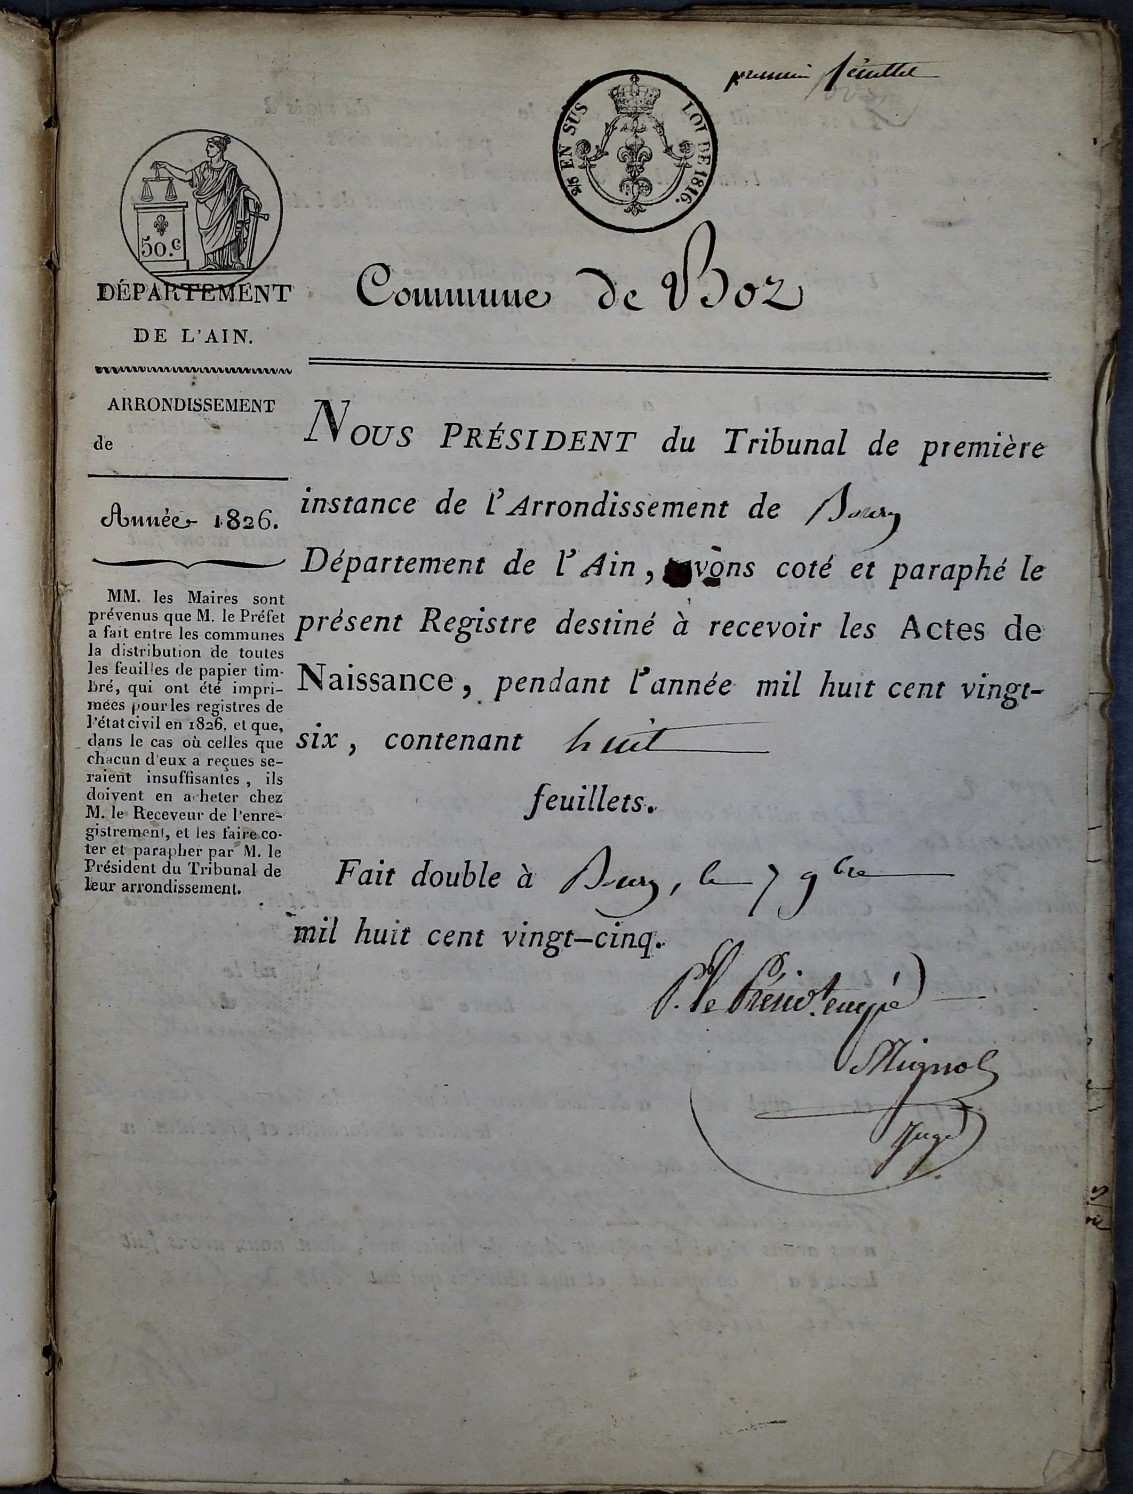 premier feuillet
2/5 EN SUS LOI DE 1816.
50.c
DÉPARTEMENT
DE L'AIN.
Commune de Boz
ARRONDISSEMENT
de
Année 1826.
MM. les Maires sont
prévenus que M. le Préfet
a fait entre les communes
la distribution de toutes
les feuilles de papier tim-
bré, qui ont été impri-
mées pour les registres de
l'état civil en 1826, et que,
dans le cas où celles que
chacun d'eux a reçues se-
raient insuffisantes, ils
doivent en acheter chez
M. le Receveur de l'enre-
gistrement, et les faire co-
ter et parapher par M. le
Président du Tribunal de
leur arrondissement.
NOUS PRÉSIDENT du Tribunal de première
instance de l'Arrondissement de Bourg
Département de l'Ain, avons coté et paraphé le
présent Registre destiné à recevoir les Actes de
Naissance, pendant l'année mil huit cent vingt-
six, contenant huit
feuillets.
Fait double à Bourg, le 7 9bre
mil huit cent vingt-cinq.
P. le Présidt. empé
Mignot
Juge